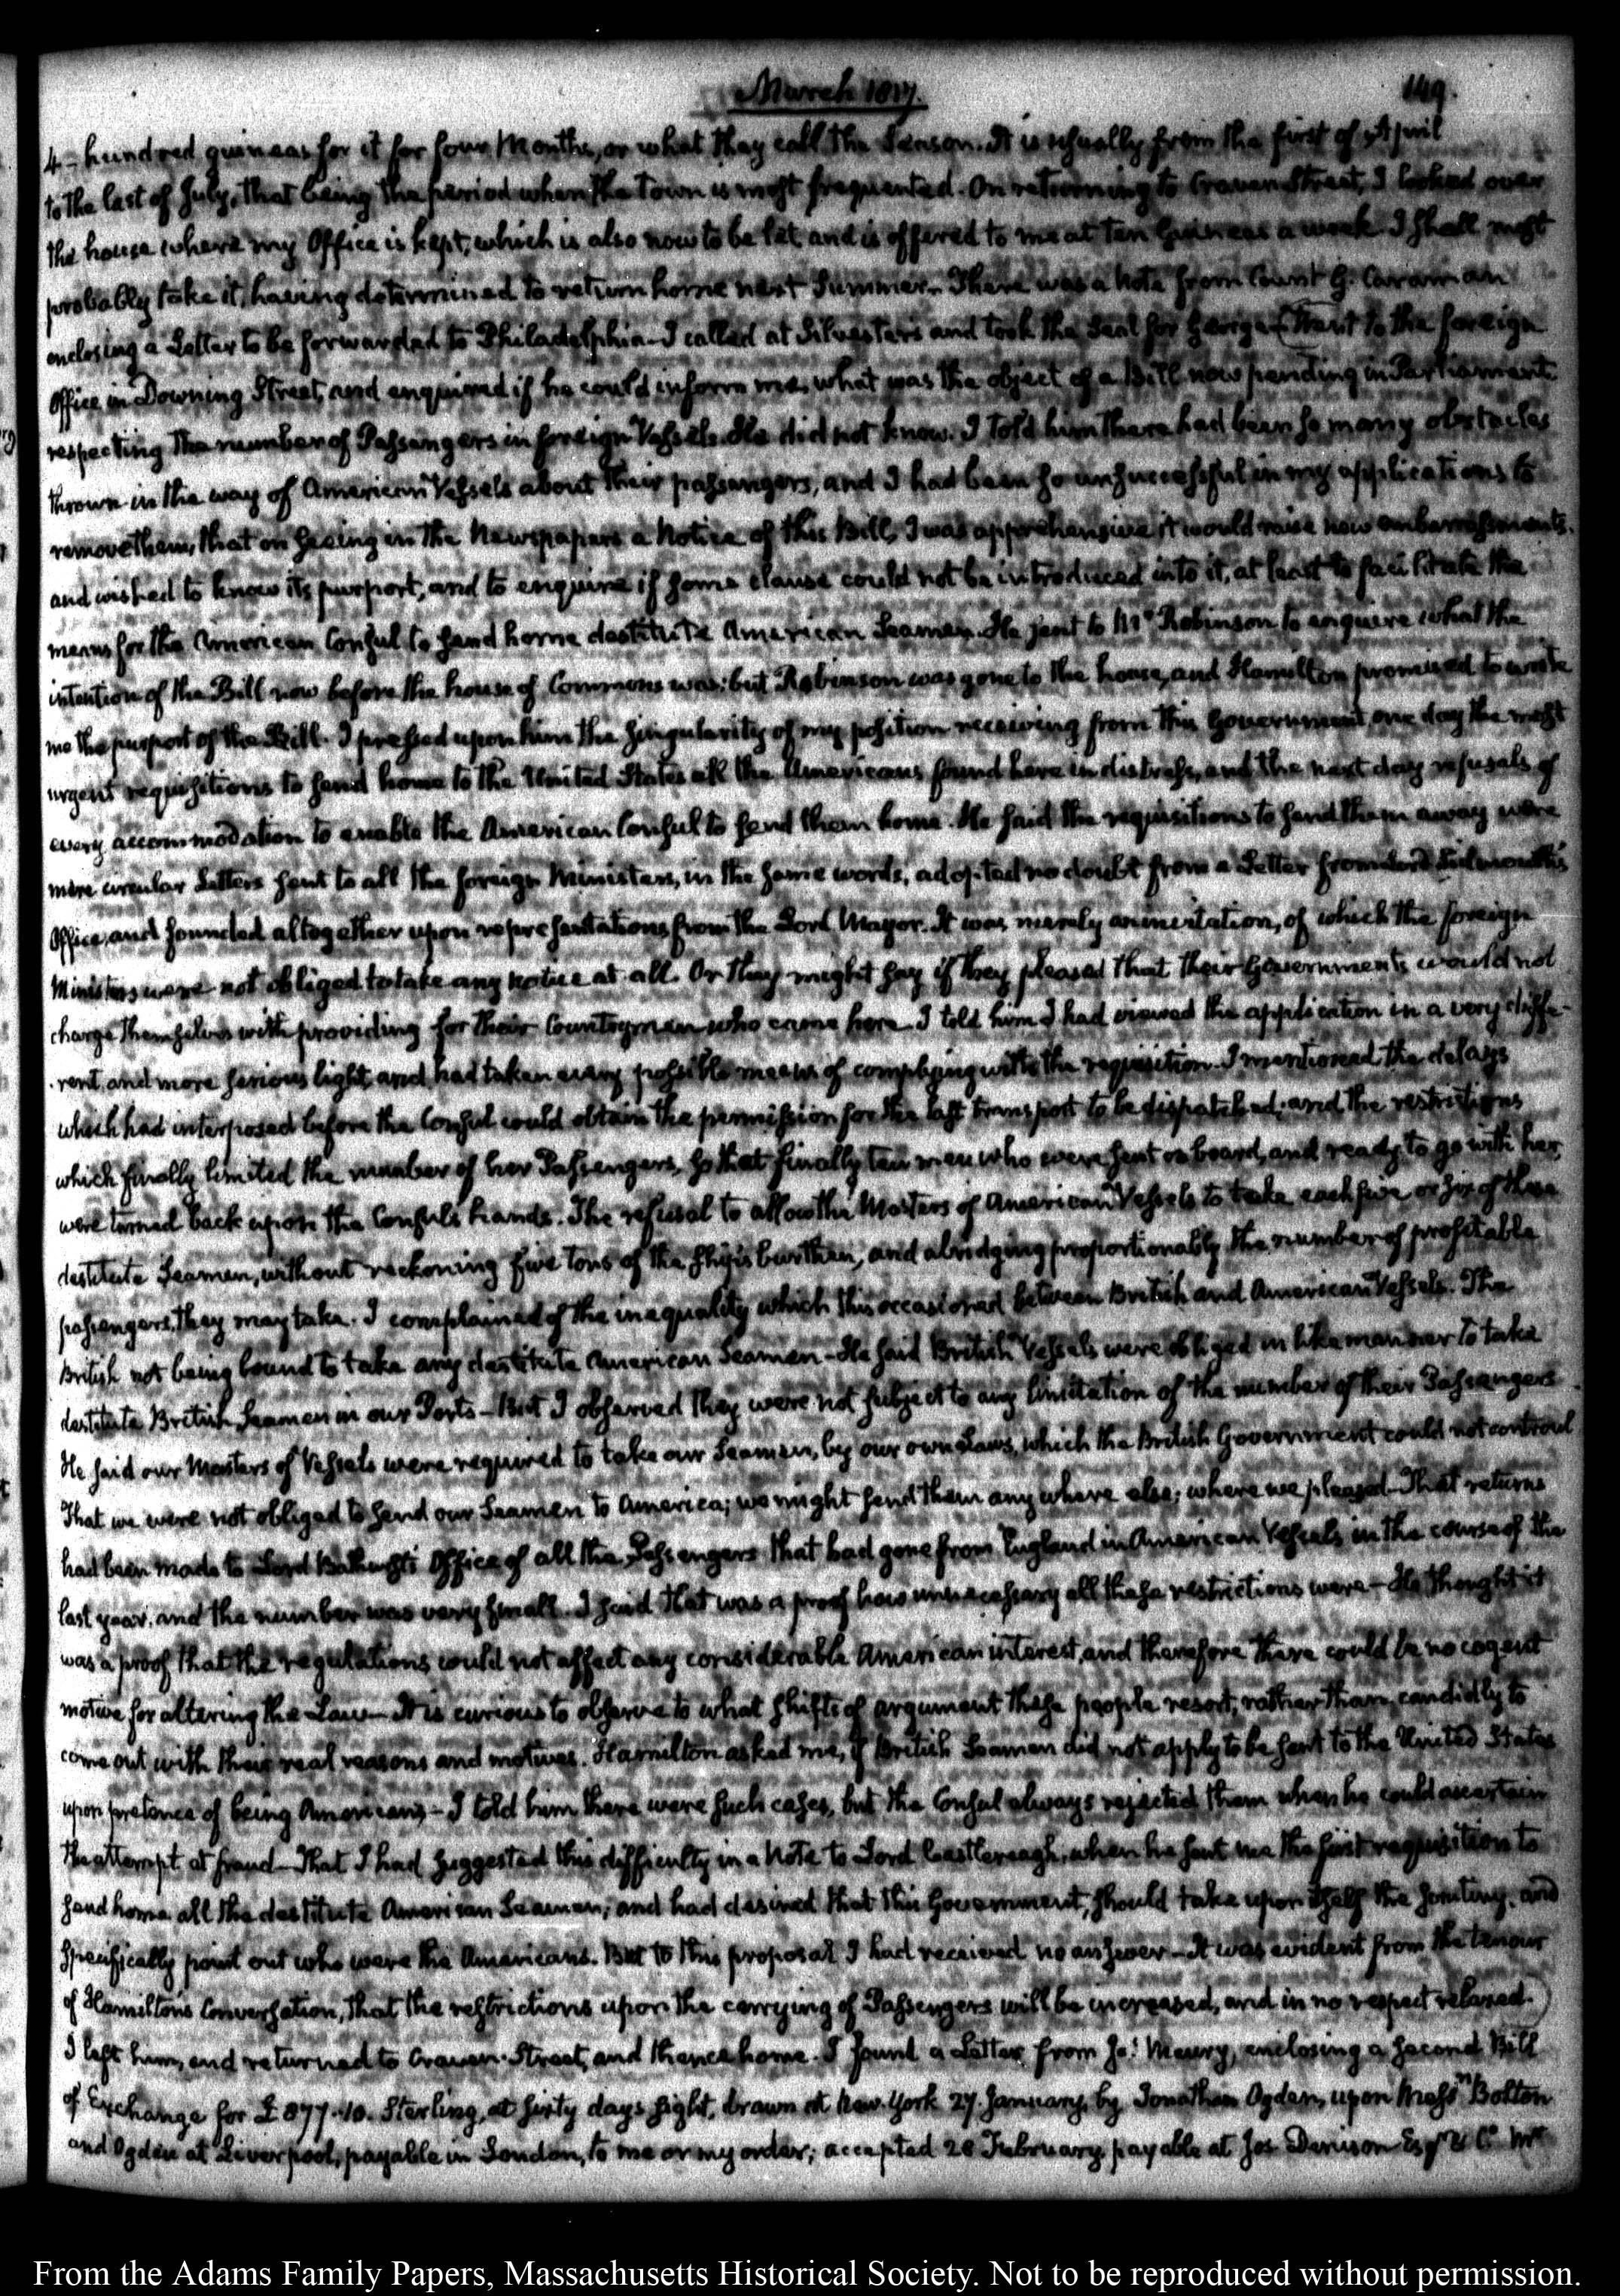 March 1817.
149.
4– hundred guineas for it for four Months, or what they call the Season. It is usually from the first of April
to the last of July, that being the period when the Town is most frequented. On returning to Craven Street, I looked over
the house where my Office is kept, which is also now to be let, and is offered to me at ten Guineas a week. I shall most
probably take it, having determined to return home next Summer. There was a Note from Count G. Caraman
enclosing a Letter to be forwarded to Philadelphia– I called at Silvester's and took the Seal for George– Went to the foreign
Office in Downing Street, and enquired if he could inform me, what was the object of a Bill now pending in Parliament
respecting the number of Passengers in foreign Vessels. He did not know. I told him there had been so many obstacles
thrown in the way of American Vessels about their passengers, and I had been so unsuccessful in my applications to
remove them, that on seeing in the Newspapers a Notice of this Bill, I was apprehensive it would raise new embarrassments.
and wished to know its purport, and to enquire if some clause could not be introduced into it, at least to facilitate the
means for the American Consul to send home destitute American Seamen. He sent to Mr Robinson to enquire what the
intention of the Bill now before the house of Commons was; but Robinson was gone to the house, and Hamilton promised to write
me the purport of the Bill. I pressed upon him the singularity of my position receiving from this Government, one day the most
urgent requisitions to send home to the United States all the Americans found here in distress, and the next day refusals of
every accommodation to enable the American Consul to send them home. He said the requisitions to send them away were
mere circular Letters sent to all the foreign Ministers, in the same words, adopted no doubt from a Letter from Lord Sidmouth's
Office, and founded altogether upon representations from the Lord Mayor. It was merely an invitation, of which the foreign
Ministers were not obliged to take any notice at all. Or they might say if they pleased that their Governments would not
charge themselves with providing for their Countrymen who came here. I told him I had viewed the application in a very diffe-
rent, and more serious light, and had taken every possible means of complying with the requisition. I mentioned the delays
which had interposed before the Consul could obtain the permission for the last transport to be dispatched; and the restrictions
which finally limited the number of her Passengers, so that finally ten men who were sent on board, and ready to go with her,
were turned back upon the Consul's hands. The refusal to allow the Masters of American Vessels to take each five or six of these
destitute Seamen, without reckoning five tons of the ship's burthen, and abridging proportionably the number of profitable
passengers, they may take. I complained of the inequality which this occasioned between British and American Vessels. The
British not being bound to take any destitute American Seamen– He said British Vessels were obliged in like manner to take
destitute British Seamen in our Ports– But I observed they were not subject to any limitation of the number of their Passengers
He said our Masters of Vessels were required to take our Seamen, by our own Laws, which the British Government could not controul
That we were not obliged to send our Seamen to America; we might send them any where else; where we pleased– That returns
had been made to Lord Bathurst's Office of all the Passengers that had gone from England in American Vessels in the course of the
last year, and the number was very small. I said that was a proof how unnecessary all these restrictions were– He thought it
was a proof that the regulations would not affect any considerable American interest, and therefore there could be no cogent
motive for altering the Law– It is curious to observe to what shifts of argument these people resort, rather than candidly to
come out with their real reasons and motives. Hamilton asked me, if British Seamen did not apply to be sent to the United States
upon pretence of being Americans– I told him there were such cases, but the Consul always rejected them when he could ascertain
the attempt at fraud– That I had suggested this difficulty in a Note to Lord Castlereagh, when he sent me the first requisition to
send home all the destitute American Seamen; and had desired that this Government, should take upon itself the scrutiny, and
specifically point out who were the Americans. But to this proposal I had received no answer– It was evident from the tenour
of Hamilton's Conversation, that the restrictions upon the carrying of Passengers will be increased, and in no respect relaxed.
I left him, and returned to Craven-Street, and thence home. I found a Letter from Js. Maury, enclosing a second Bill
of Exchange for £877..10. Sterling, at sixty days sight, drawn at New York 27. January, by Jonathan Ogden, upon Messrs Bolton
and Ogden at Liverpool, payable in London, to me or my order; accepted 28 February, payable at Jos. Denison Esqr & Co. Mr
From the Adams Family Papers, Massachusetts Historical Society. Not to be reproduced without permission.